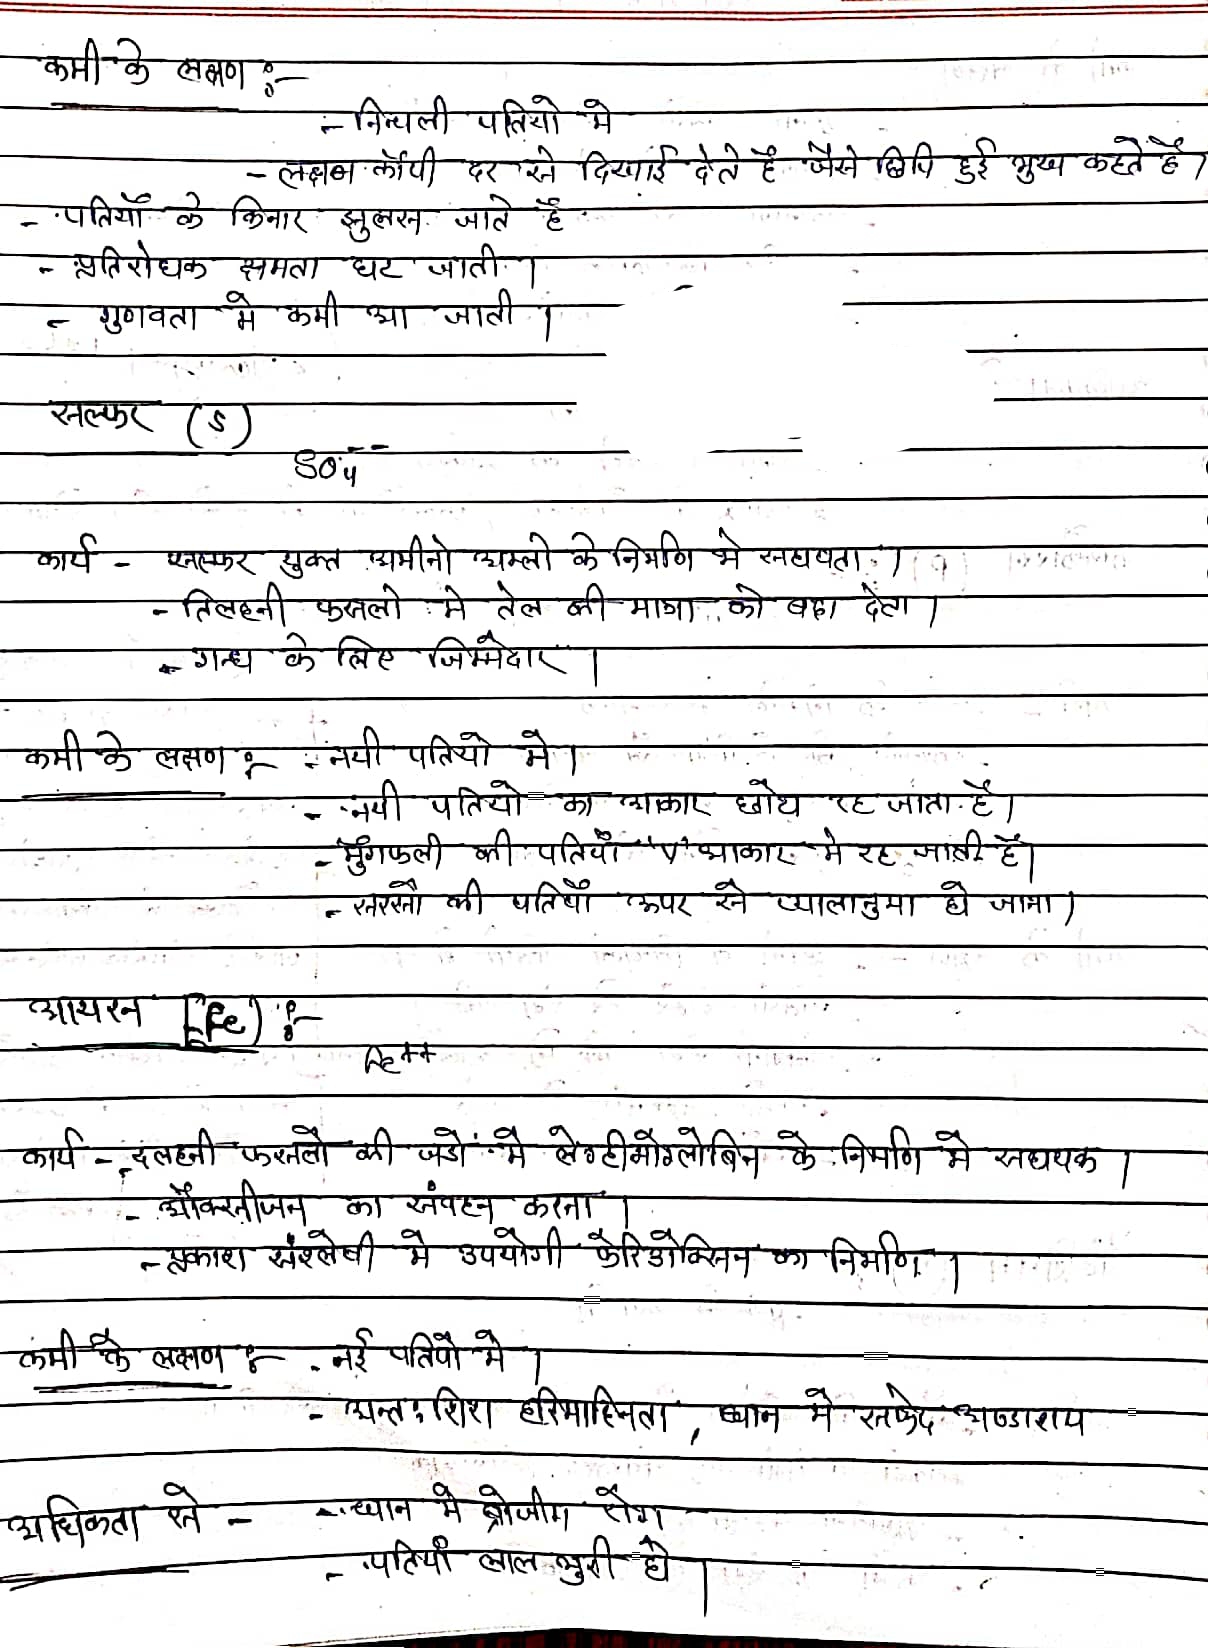 कमी के लक्षण :-
- निचली पतियो मे
- लक्षण कॉपी दर से दिखाई देते है जैसे छिपि हुई भुख कहते है।
- पतियाँ के किनार झुलस जाते है
- प्रतिरोधक क्षमता घट जाती।
- गुणवता मे कमी आ जाती।
सल्फर (S)
SO4--
कार्य - सल्फर युक्त अमीनो अम्लो के निर्माण मे सहायता।
- तिलहनी फसलो मे तेल की मात्रा को बढा देता।
- गन्ध के लिए जिम्मेदार।
कमी के लक्षण :- - नयी पतियो मे।
- नयी पतियो का आकार छोटा रह जाता है।
- मुँगफली की पतियाँ 'V' आकार मे रह जाती है।
- सरसो की पतियाँ ऊपर से प्यालानुमा हो जाना।
आयरन (Fe) :-
Fe++
कार्य - दलहनी फसलो की जडो मे लेग्हीमोग्लोबिन के निर्माण मे सहायक।
- ऑक्सीजन का संवहन करना।
- प्रकाश संश्लेषी मे उपयोगी फेरिडोक्सिन का निर्माण।
कमी के लक्षण :- - नई पतियो मे।
- अन्तः शिरा हरिमाहिनता, ध्यान मे सफेद अण्डाशय
अधिकता से - - ध्यान मे ब्रोजीग रोग
- पतियाँ लाल भुरी हो।